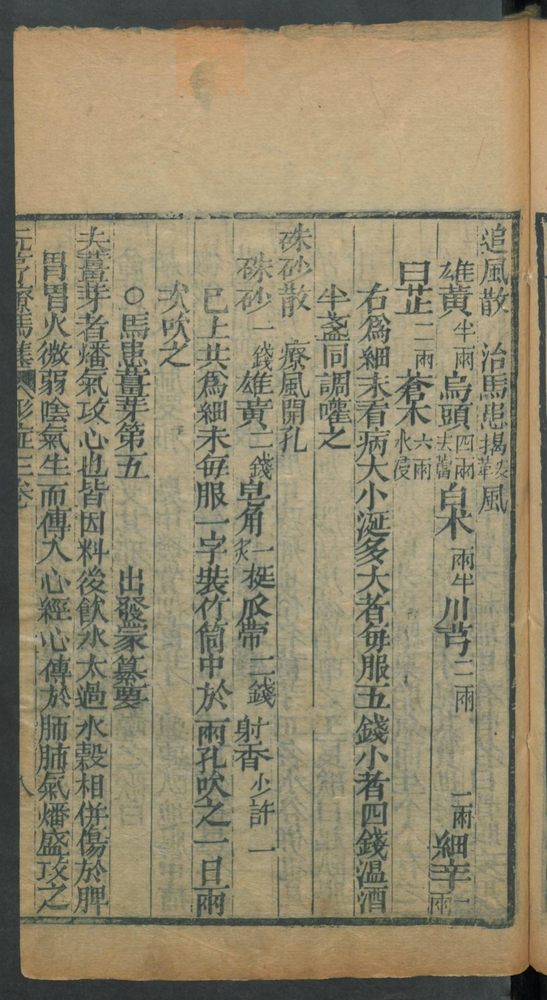 追風散　治馬患揭鞍風
雄黃半兩烏頭四兩去蘆白朮兩半川芎二兩　一兩細辛一兩
白芷二兩蒼朮六兩水浸
右爲細末看病大小涎多大者每服五錢小者四錢溫酒
半盞同調嚾之
硃砂散　療風開孔
硃砂一錢雄黃二錢皂角一挺炙瓜蒂二錢射香少許一
已上共爲細末每服一字裝竹筒中於兩孔吹之一日兩
次吹之
○馬患薑芽第五　出發蒙纂要
夫薑芽者燔氣攻心也皆因料後飲水太過水穀相併傷於脾
胃胃火微弱陰氣生而傳入心經心傳於肺肺氣燔盛攻之
元亨療馬集　三卷　八